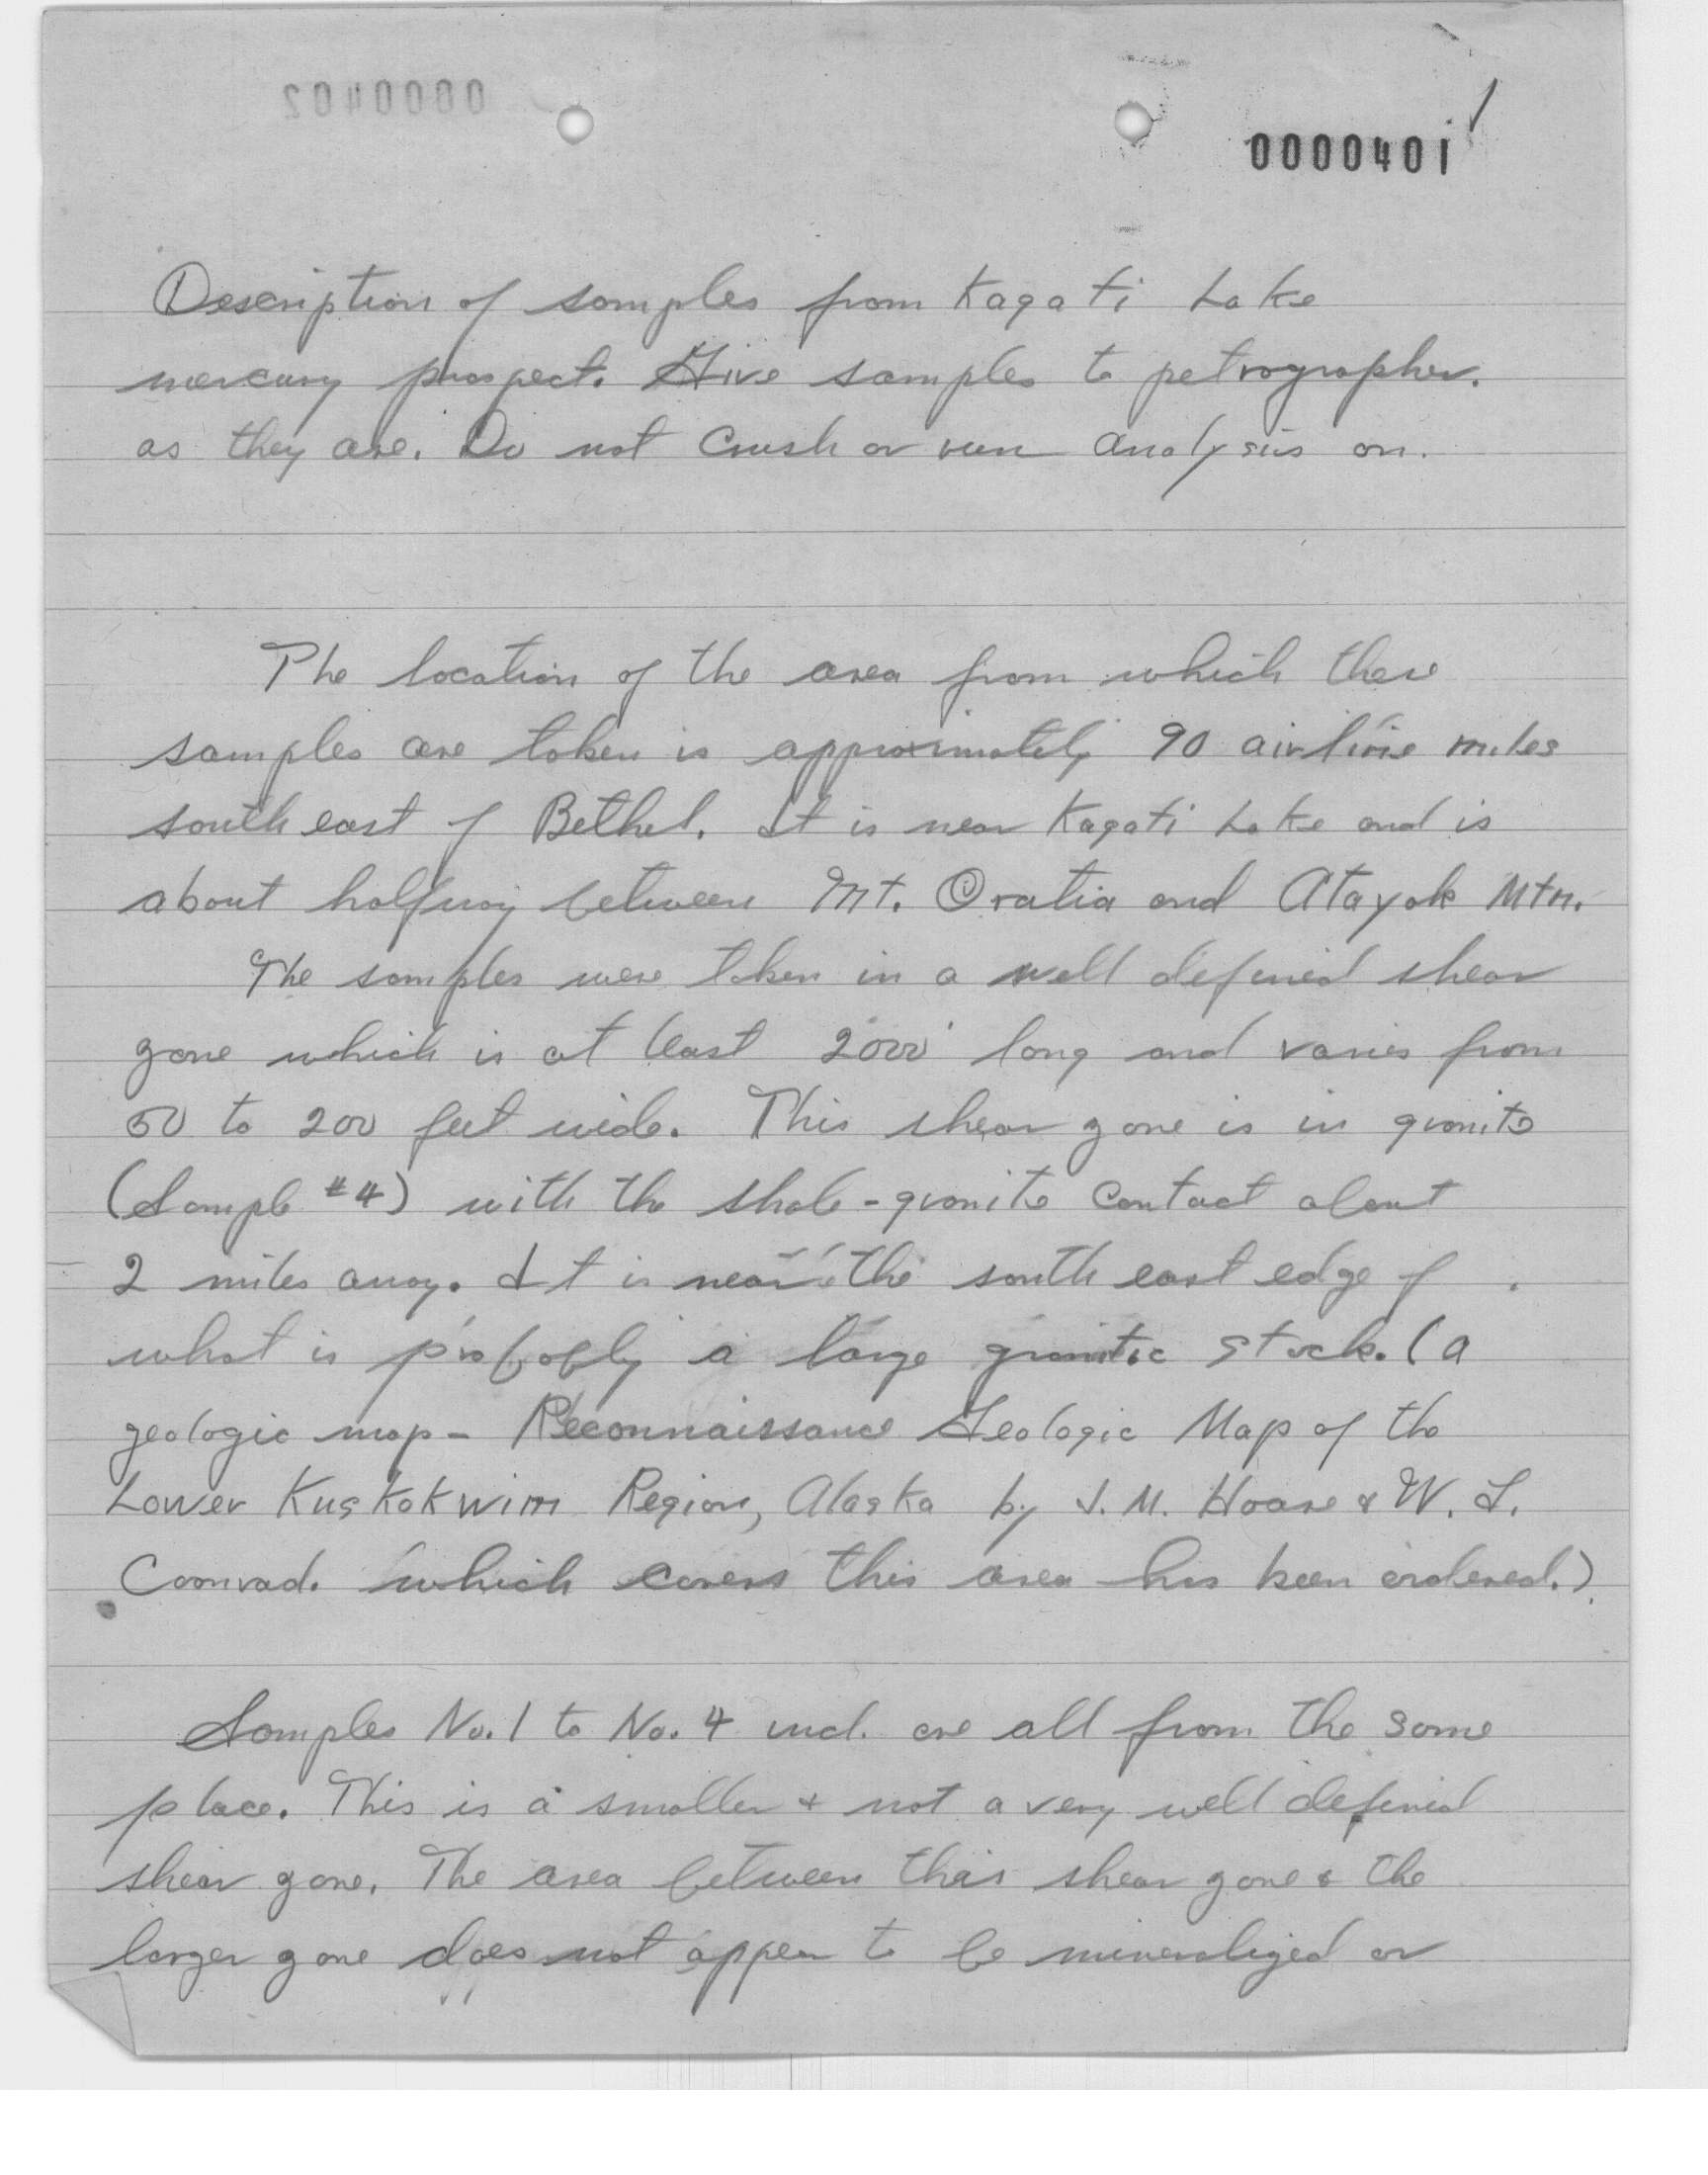 0000402
0000401
Description of samples from Kagati Lake
mercury prospect. Give samples to petrographer.
as they are. Do not crush or run analysis on.
The location of the area from which these
samples are taken is approximately 90 airline miles
south east of Bethel. It is near Kagati Lake and is
about halfway between Mt. Oratia and Atayak Mtn.
The samples were taken in a well defined shear
zone which is at least 2000' long and varies from
50 to 200 feet wide. This shear zone is in granite
(Sample #4) with the shale-granite contact about
2 miles away. It is near the south east edge of
what is probably a large granitic stock. (a
geologic map - Reconnaissance Geologic Map of the
Lower Kuskokwim Region, Alaska by J. M. Hoare & W. L.
Coonrad. which covers this area has been ordered.)
Samples No. 1 to No. 4 incl. are all from the same
place. This is a smaller + not a very well defined
shear zone. The area between this shear zone & the
larger zone does not appear to be mineralized or